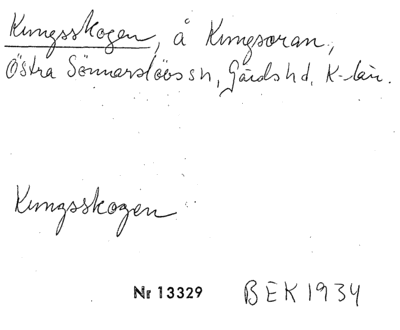 Kungsskogen, å Kungsoran,
Östra Sönnarslövs sn, Gärds hd. K-län.
Kungsskogen
Nr 13329 BEK 1934